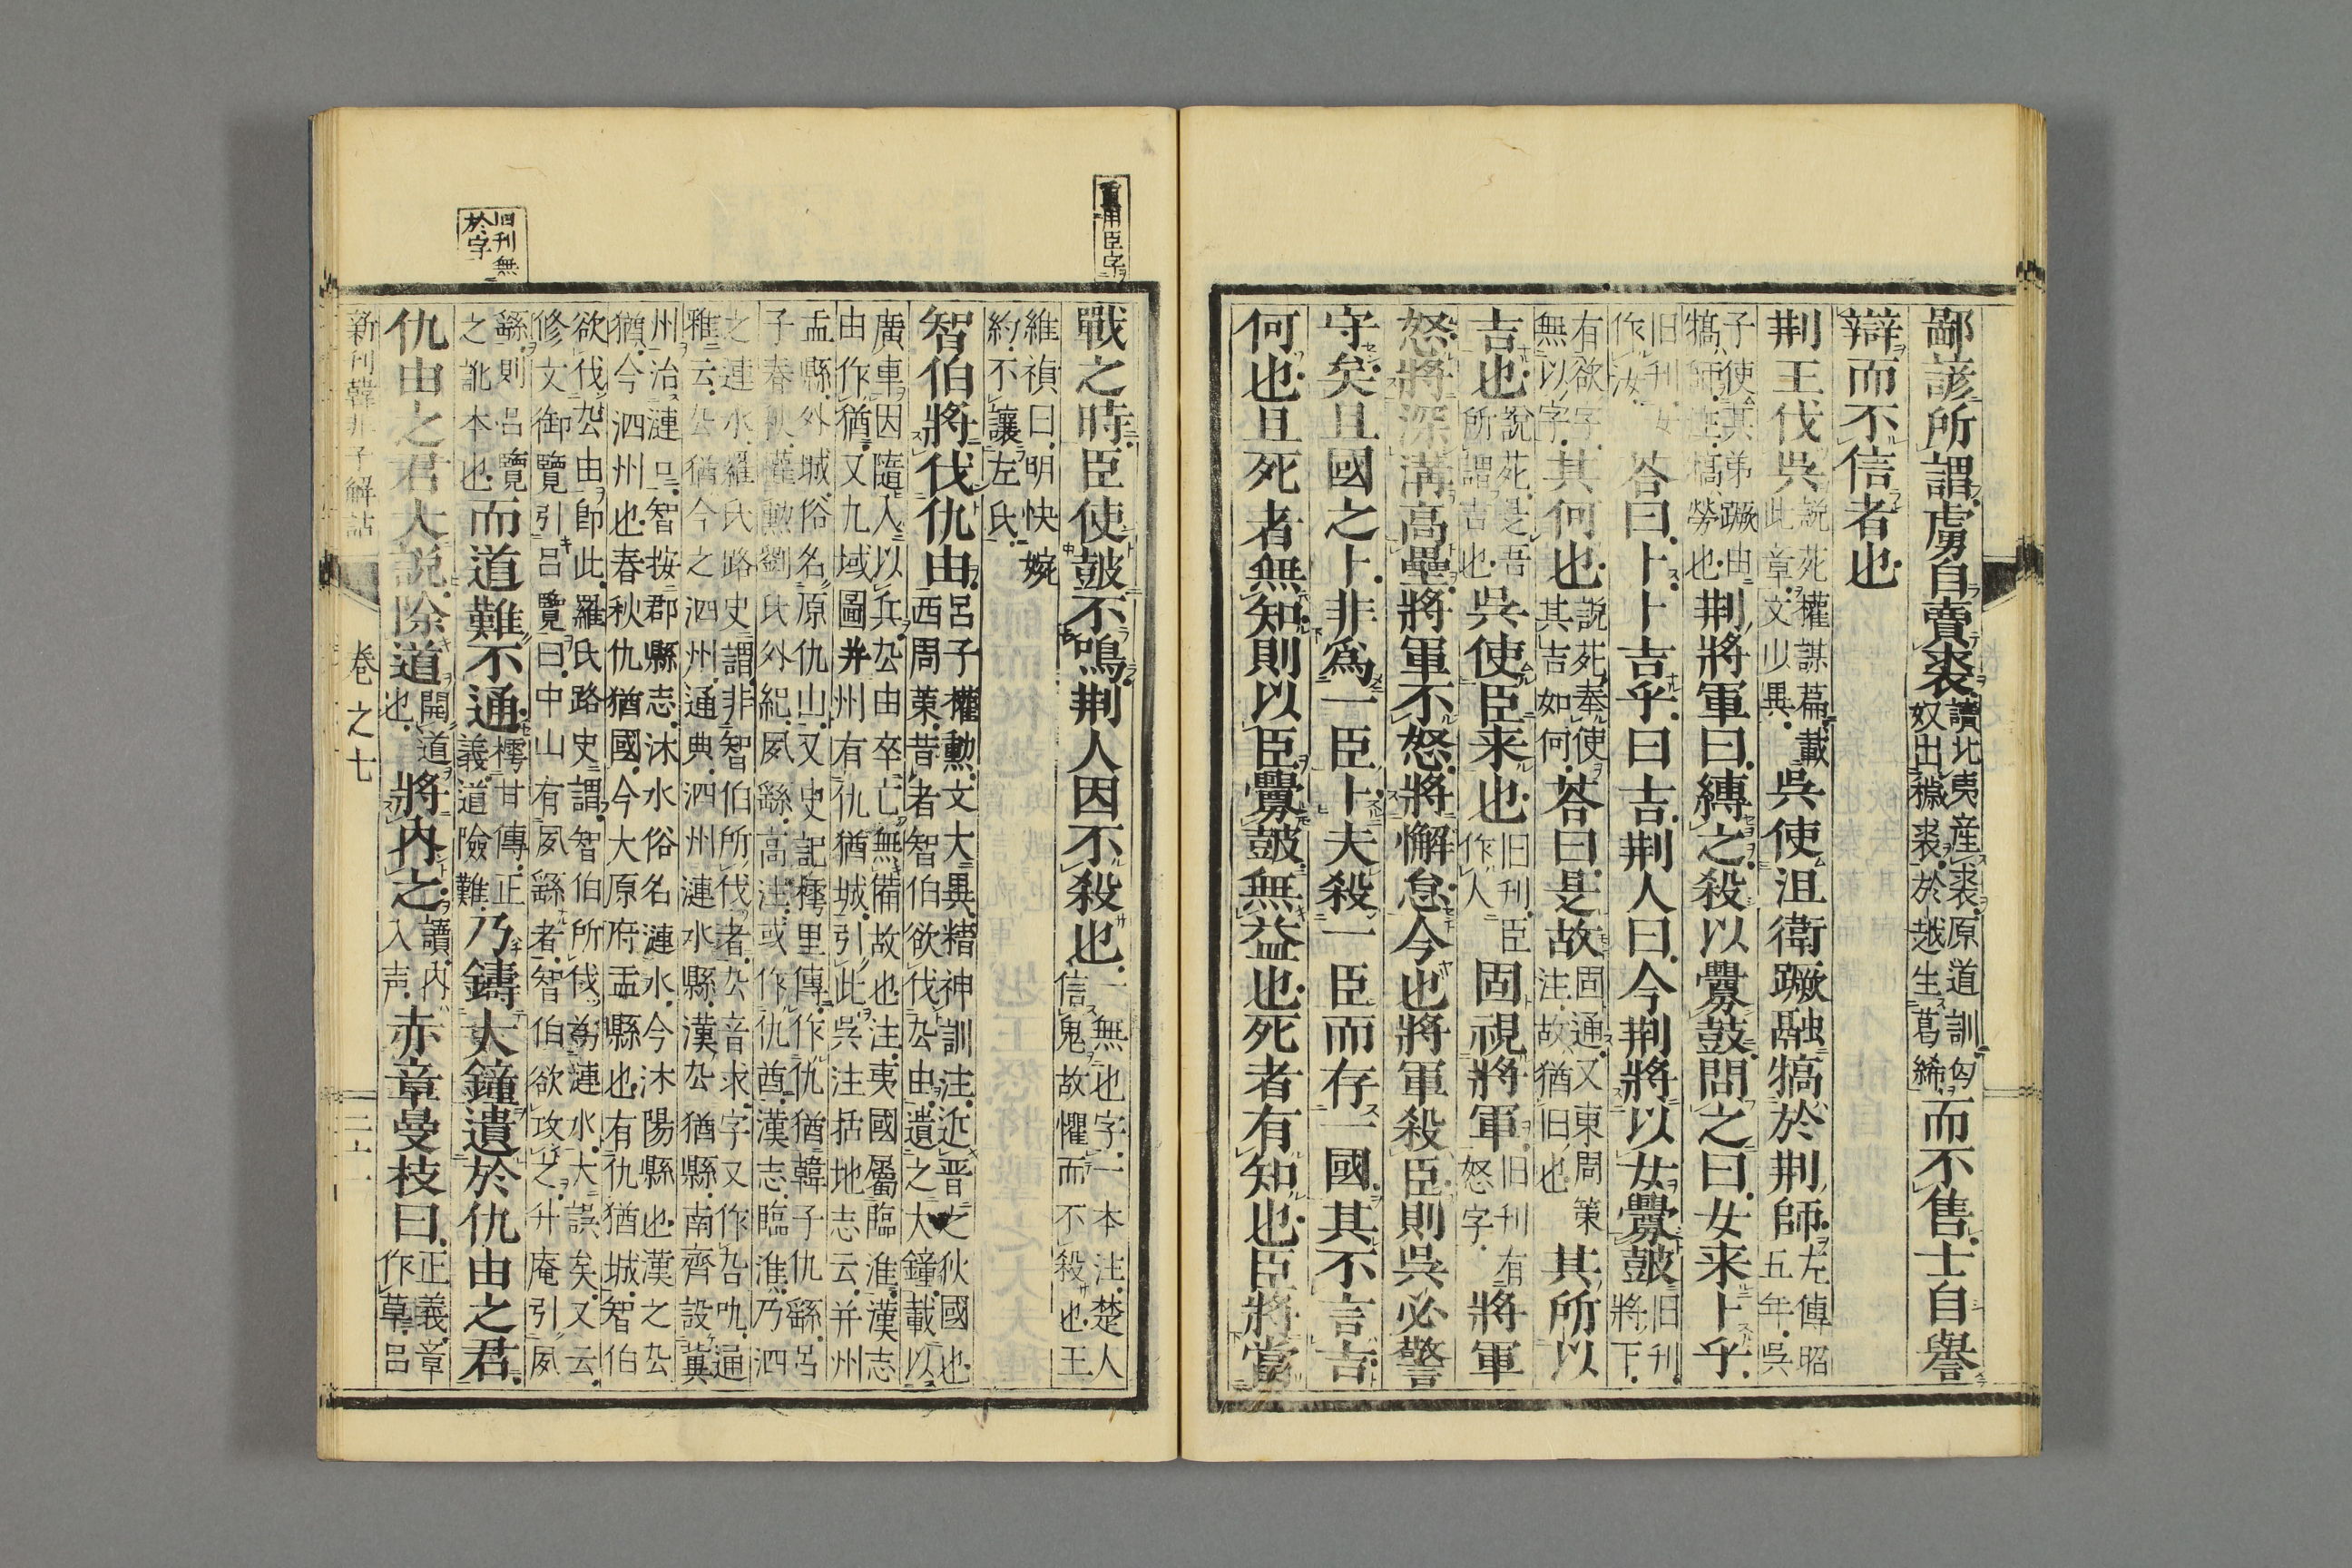 鄙諺所謂虜自賣裘讀北夷産裘原道訓匈奴出穢裘於越生葛絺而不售士自譽
辯而不信者也
荆王伐呉説苑權謀篇載此章文少異呉使沮衛蹶融犒於荆師左傳昭五年呉
子使其弟蹶由犒師注犒勞也荆將軍曰縛之殺以釁鼓問之曰女来卜乎
旧刊女作汝荅曰卜卜吉乎曰吉荆人曰今荆將以女釁鼓旧刊將下
有欲字無以字其何也説苑奉使其吉如何荅曰是故固通又東周策注故猶旧也其所以
吉也説苑是吾所謂吉也呉使臣来也旧刊臣作人固視將軍旧刊有怒字將軍
怒將深溝高壘將軍不怒將懈怠今也將軍殺臣則呉必警
守矣且國之卜非爲一臣卜夫殺一臣而存一國其不言吉
何也且死者無知則以臣釁鼓無益也死者有知也臣將當
重用臣字
戰之時臣使鼓不鳴荆人因不殺也一無也字一本注楚人信鬼故懼而不殺也王
維禎曰明快婉約不讓左氏
智伯將伐仇由呂子權勲文大異精神訓注近晋之狄國也西周策昔者智伯欲伐厹由遺之大鐘載以
廣車因隨入以兵厹由卒亡無備故也注夷國屬臨淮漢志由作猶又九域圖并州有仇猶城引此呉注括地志云并州
盂縣外城俗名原仇山又史記樗里傳作仇猶韓子仇繇呂子春秋權勲劉氏外紀夙繇高注或作仇酋漢志臨淮乃泗
之漣水羅氏路史謂非智伯所伐者厹音求字又作厹叴通雅云厹猶今之泗州通典泗州漣水縣漢厹猶縣南齊設冀
州治漣口智按郡縣志沐水俗名漣水今沐陽縣也漢之厹猶今泗州也春秋仇猶國今大原府盂縣也有仇猶城智伯
欲伐厹由卽此羅氏路史謂智伯所伐爲漣水大誤矣又云修文御覽引呂覽曰中山有夙繇者智伯欲攻之升庵引夙
繇則呂覽之訛本也而道難不通樗甘傳正義道險難乃鑄大鐘遺於仇由之君
旧刊無於字
仇由之君大説除道開道也將内之讀内入声赤章曼枝曰正義章作草呂
新刊韓非子解詁 卷之七